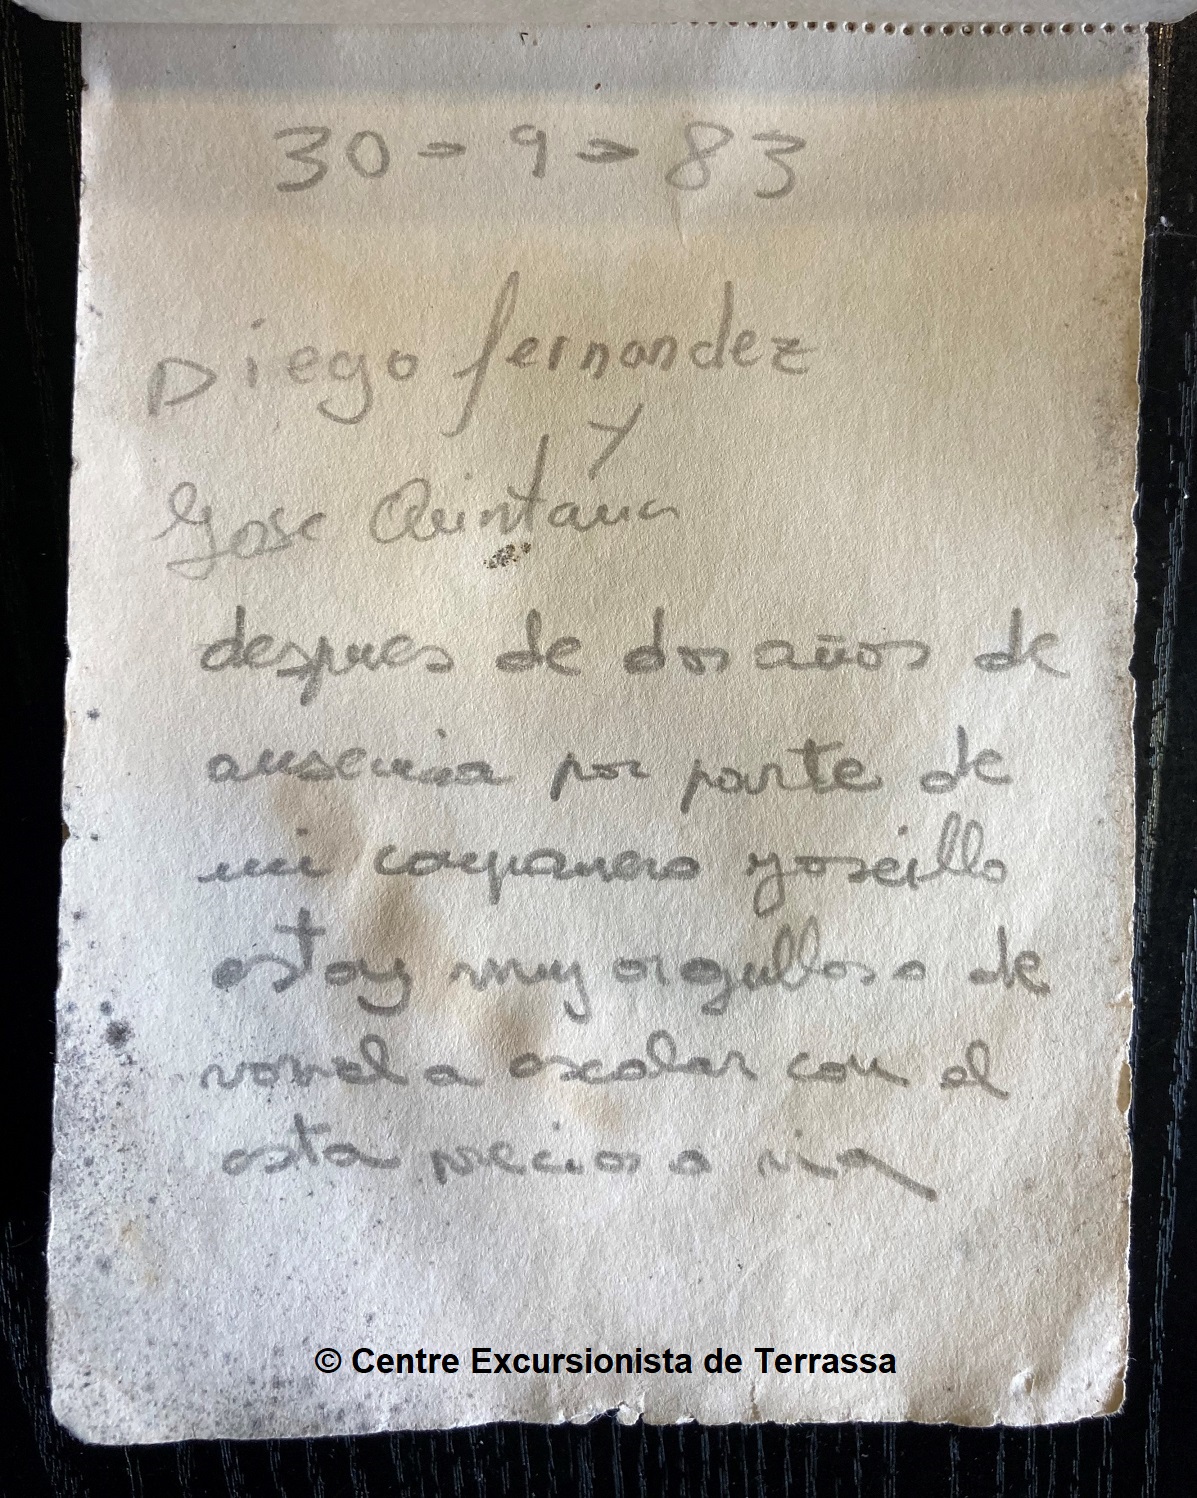 30-9-83
Diego fernandez
y
Jose Quintana
despues de dos años de
ausencia por parte de
mi compañero yoseillo
estoy muy orgulloso de
escalar con el
esta preciosa via
© Centre Excursionista de Terrassa